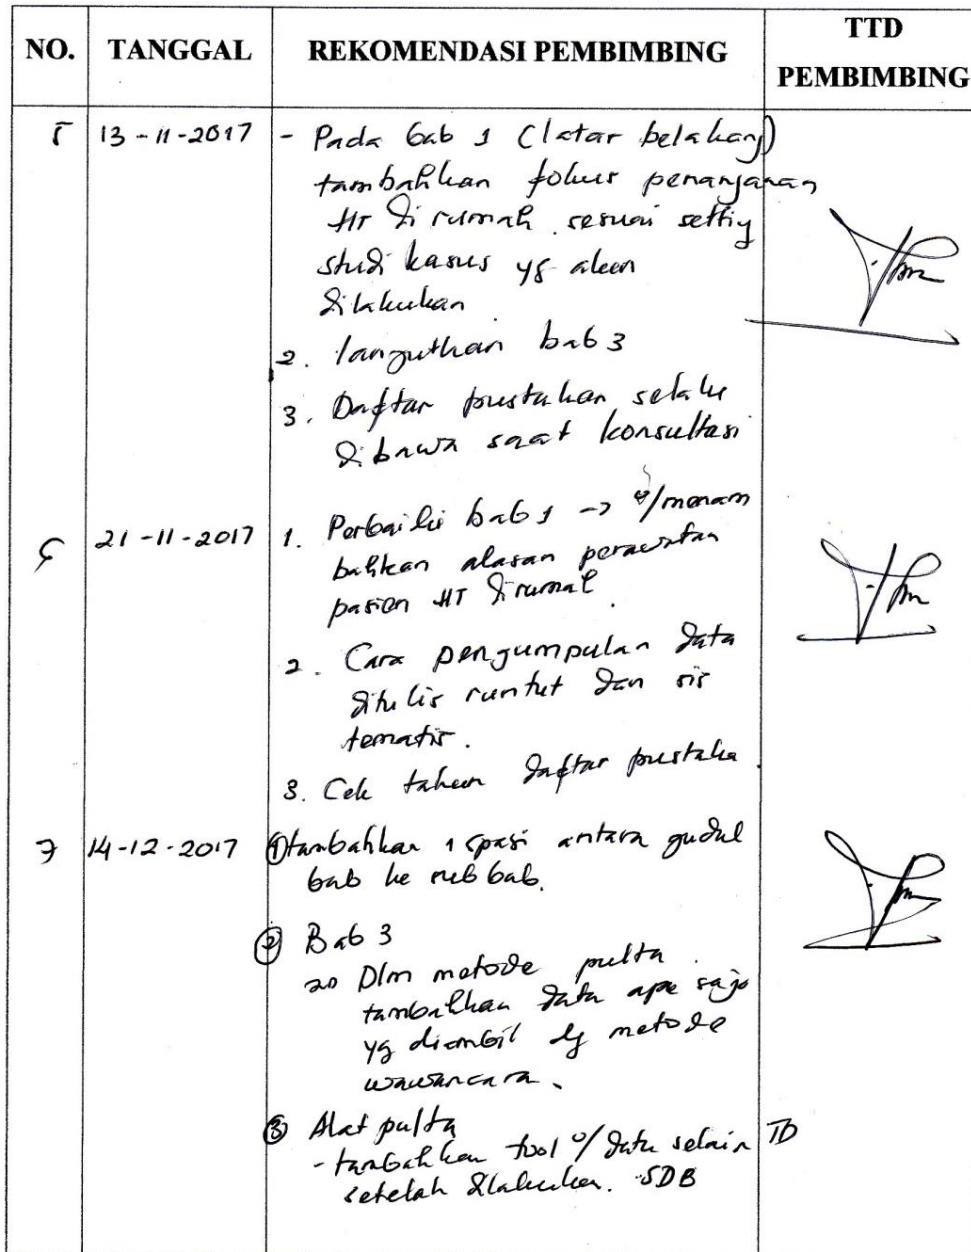 NO. TANGGAL REKOMENDASI PEMBIMBING TTD PEMBIMBING
5 13-11-2017 - Pada bab 1 (latar belakang)
tambahkan fokus penanganan
HT di rumah sesuai setting
studi kasus yg akan
dilakukan
2. lanjutkan bab 3
3. Daftar pustakan selalu
dibawa saat konsultasi
6 21-11-2017 1. Perbaiki bab 1 -> u/ menam
bahkan alasan perawatan
pasien HT dirumah
2. Cara pengumpulan data
ditulis runtut dan sis
tematis.
3. Cek tahun daftar pustaka
7 14-12-2017 ① tambahkan 1 spasi antara judul
bab ke sub bab.
② Bab 3
Dlm metode pulta
tambahkan data apa saja
yg diambil dg metode
wawancara.
③ Alat pulta
- tambahkan tool u/ data selain TD
setelah dilakukan SDB